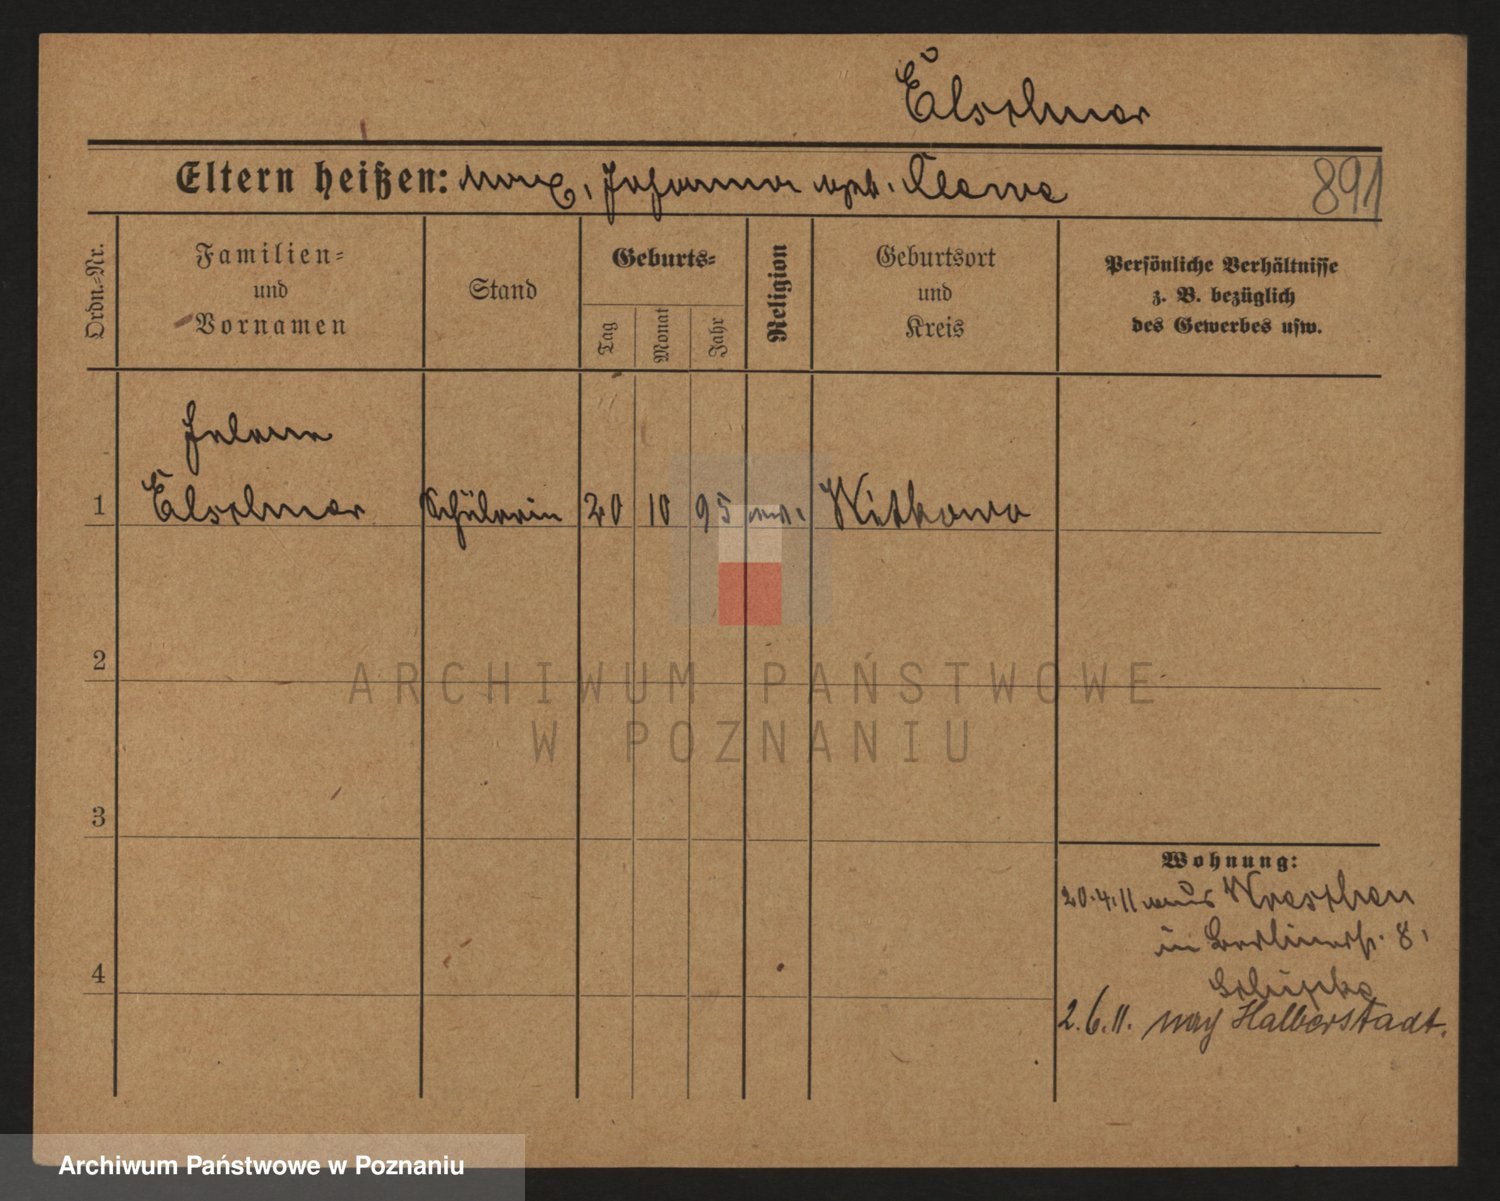 Eltern heißen: Max, Johanna geb.
891
Ordn.-Nr.
Familien-
und
Vornamen
Stand
Geburts-
Tag
Monat
Jahr
Religion
Geburtsort
und
Kreis
Persönliche Verhältnisse
z. B. bezüglich
des Gewerbes usw.
1
Schülerin
20
10
95
Witkowo
2
3
4
Wohnung:
20.4.11 aus Wreschen
in Berlinerstr. 8,
2.6.11. nach Halberstadt.
ARCHIWUM PAŃSTWOWE
W POZNANIU
Archiwum Państwowe w Poznaniu